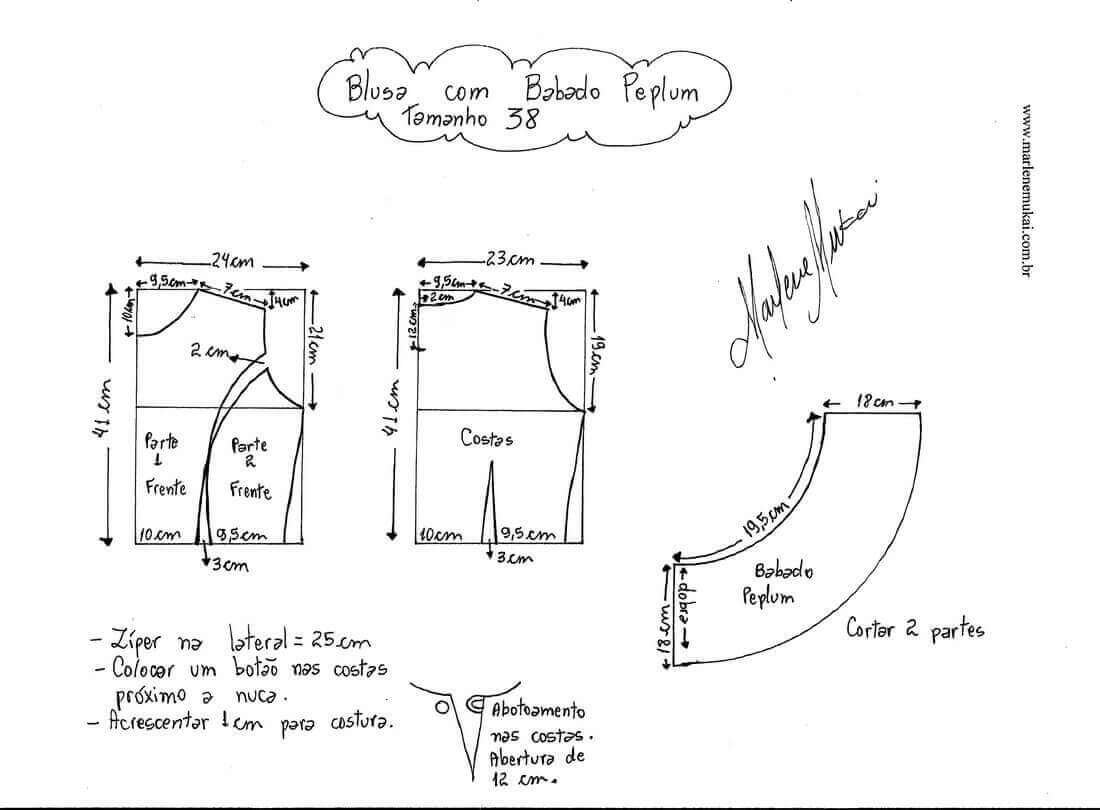 Blusa com Babado Peplum
Tamanho 38
www.marlenemukai.com.br
Marlene Mukai
24cm
9,5cm
7cm
4cm
10cm
21cm
2 cm
41 cm
Parte
1
Frente
Parte
2
Frente
10cm
9,5cm
3cm
23cm
9,5cm
7cm
2cm
4cm
12cm
19cm
41 cm
Costas
10cm
9,5cm
3cm
18cm
19,5cm
Babado
Peplum
dobra
18cm
Cortar 2 partes
- Zíper na lateral = 25cm
- Colocar um botão nas costas
próximo a nuca.
- Acrescentar 1cm para costura.
Abotoamento
nas costas.
Abertura de
12 cm.